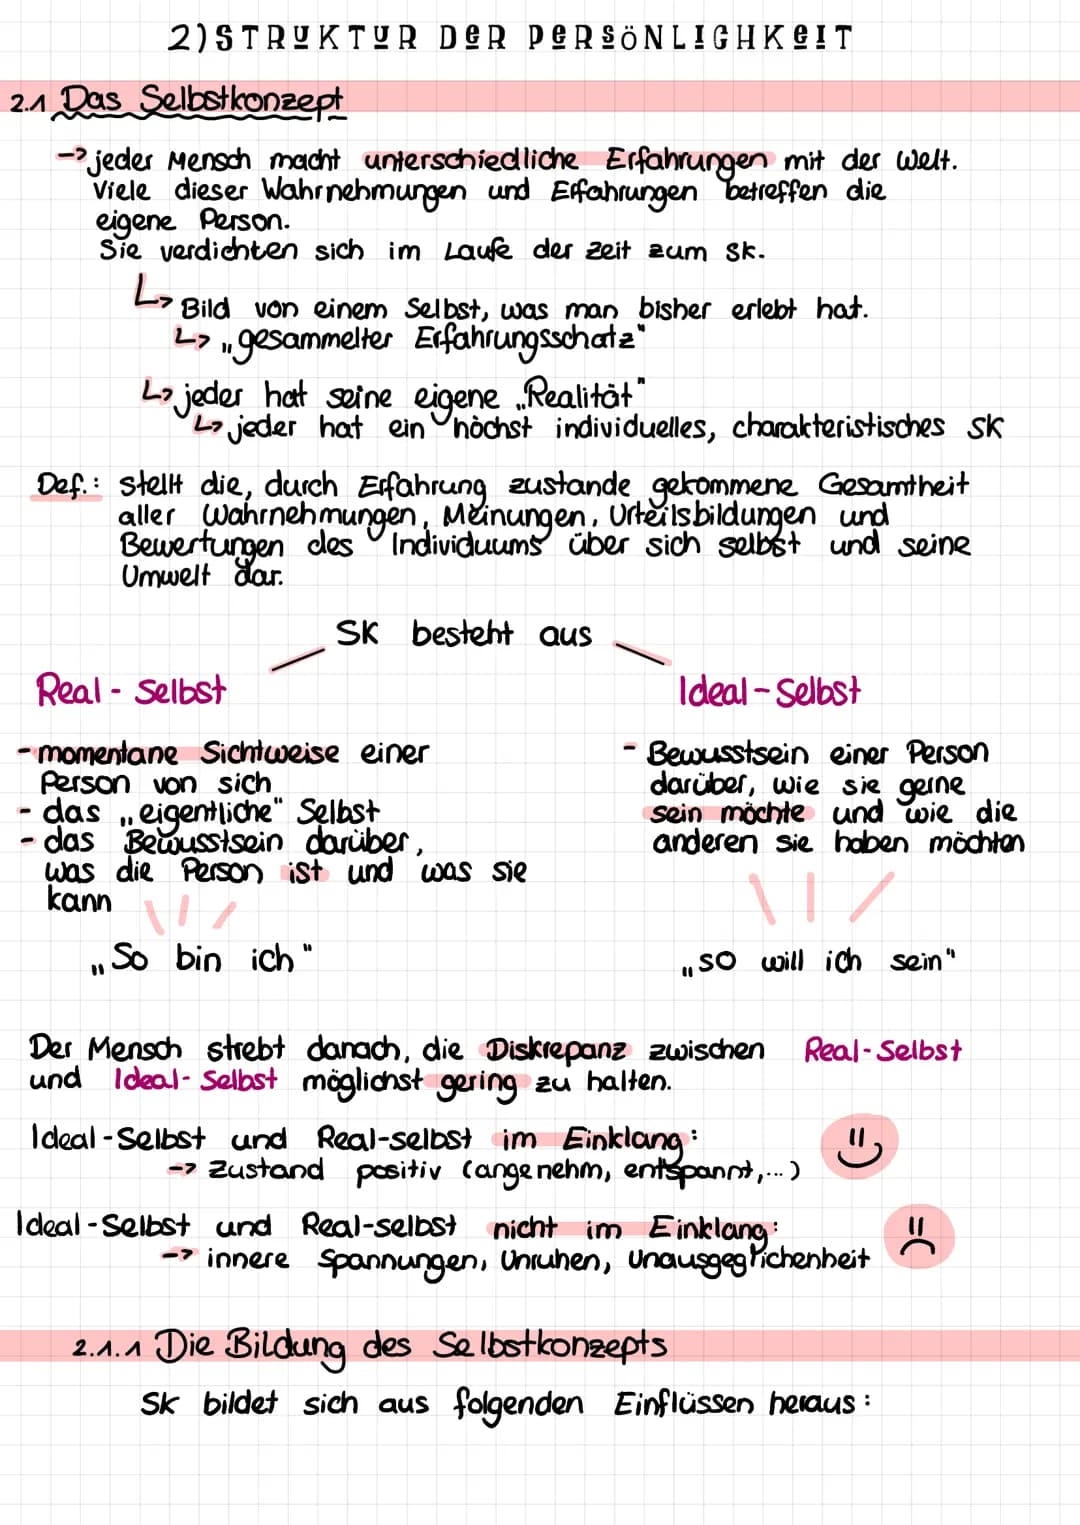 2) STRUKTUR DER PERSÖNLICHKEIT
2.1 Das Selbstkonzept
-> jeder Mensch macht unterschiedliche Erfahrungen mit der Welt.
Viele dieser Wahrnehmungen und Erfahrungen betreffen die
eigene Person.
Sie verdichten sich im Laufe der Zeit zum SK.
↳ Bild von einem Selbst, was man bisher erlebt hat.
↳ „gesammelter Erfahrungsschatz"
↳ jeder hat seine eigene „Realität"
↳ jeder hat ein höchst individuelles, charakteristisches SK
Def.: stellt die, durch Erfahrung zustande gekommene Gesamtheit
aller Wahrnehmungen, Meinungen, Urteilsbildungen und
Bewertungen des Individuums über sich selbst und seine
Umwelt dar.
SK besteht aus
Real - Selbst
- momentane Sichtweise einer
Person von sich
- das „eigentliche" Selbst
- das Bewusstsein darüber,
was die Person ist und was sie
kann
„So bin ich"
Ideal - Selbst
- Bewusstsein einer Person
darüber, wie sie gerne
sein möchte und wie die
anderen sie haben möchten
„so will ich sein"
Der Mensch strebt danach, die Diskrepanz zwischen Real-Selbst
und Ideal-Selbst möglichst gering zu halten.
Ideal-Selbst und Real-selbst im Einklang:
-> Zustand positiv (angenehm, entspannt,...)
Ideal-Selbst und Real-selbst nicht im Einklang:
-> innere Spannungen, Unruhen, Unausgeglichenheit
2.1.1 Die Bildung des Selbstkonzepts
SK bildet sich aus folgenden Einflüssen heraus: